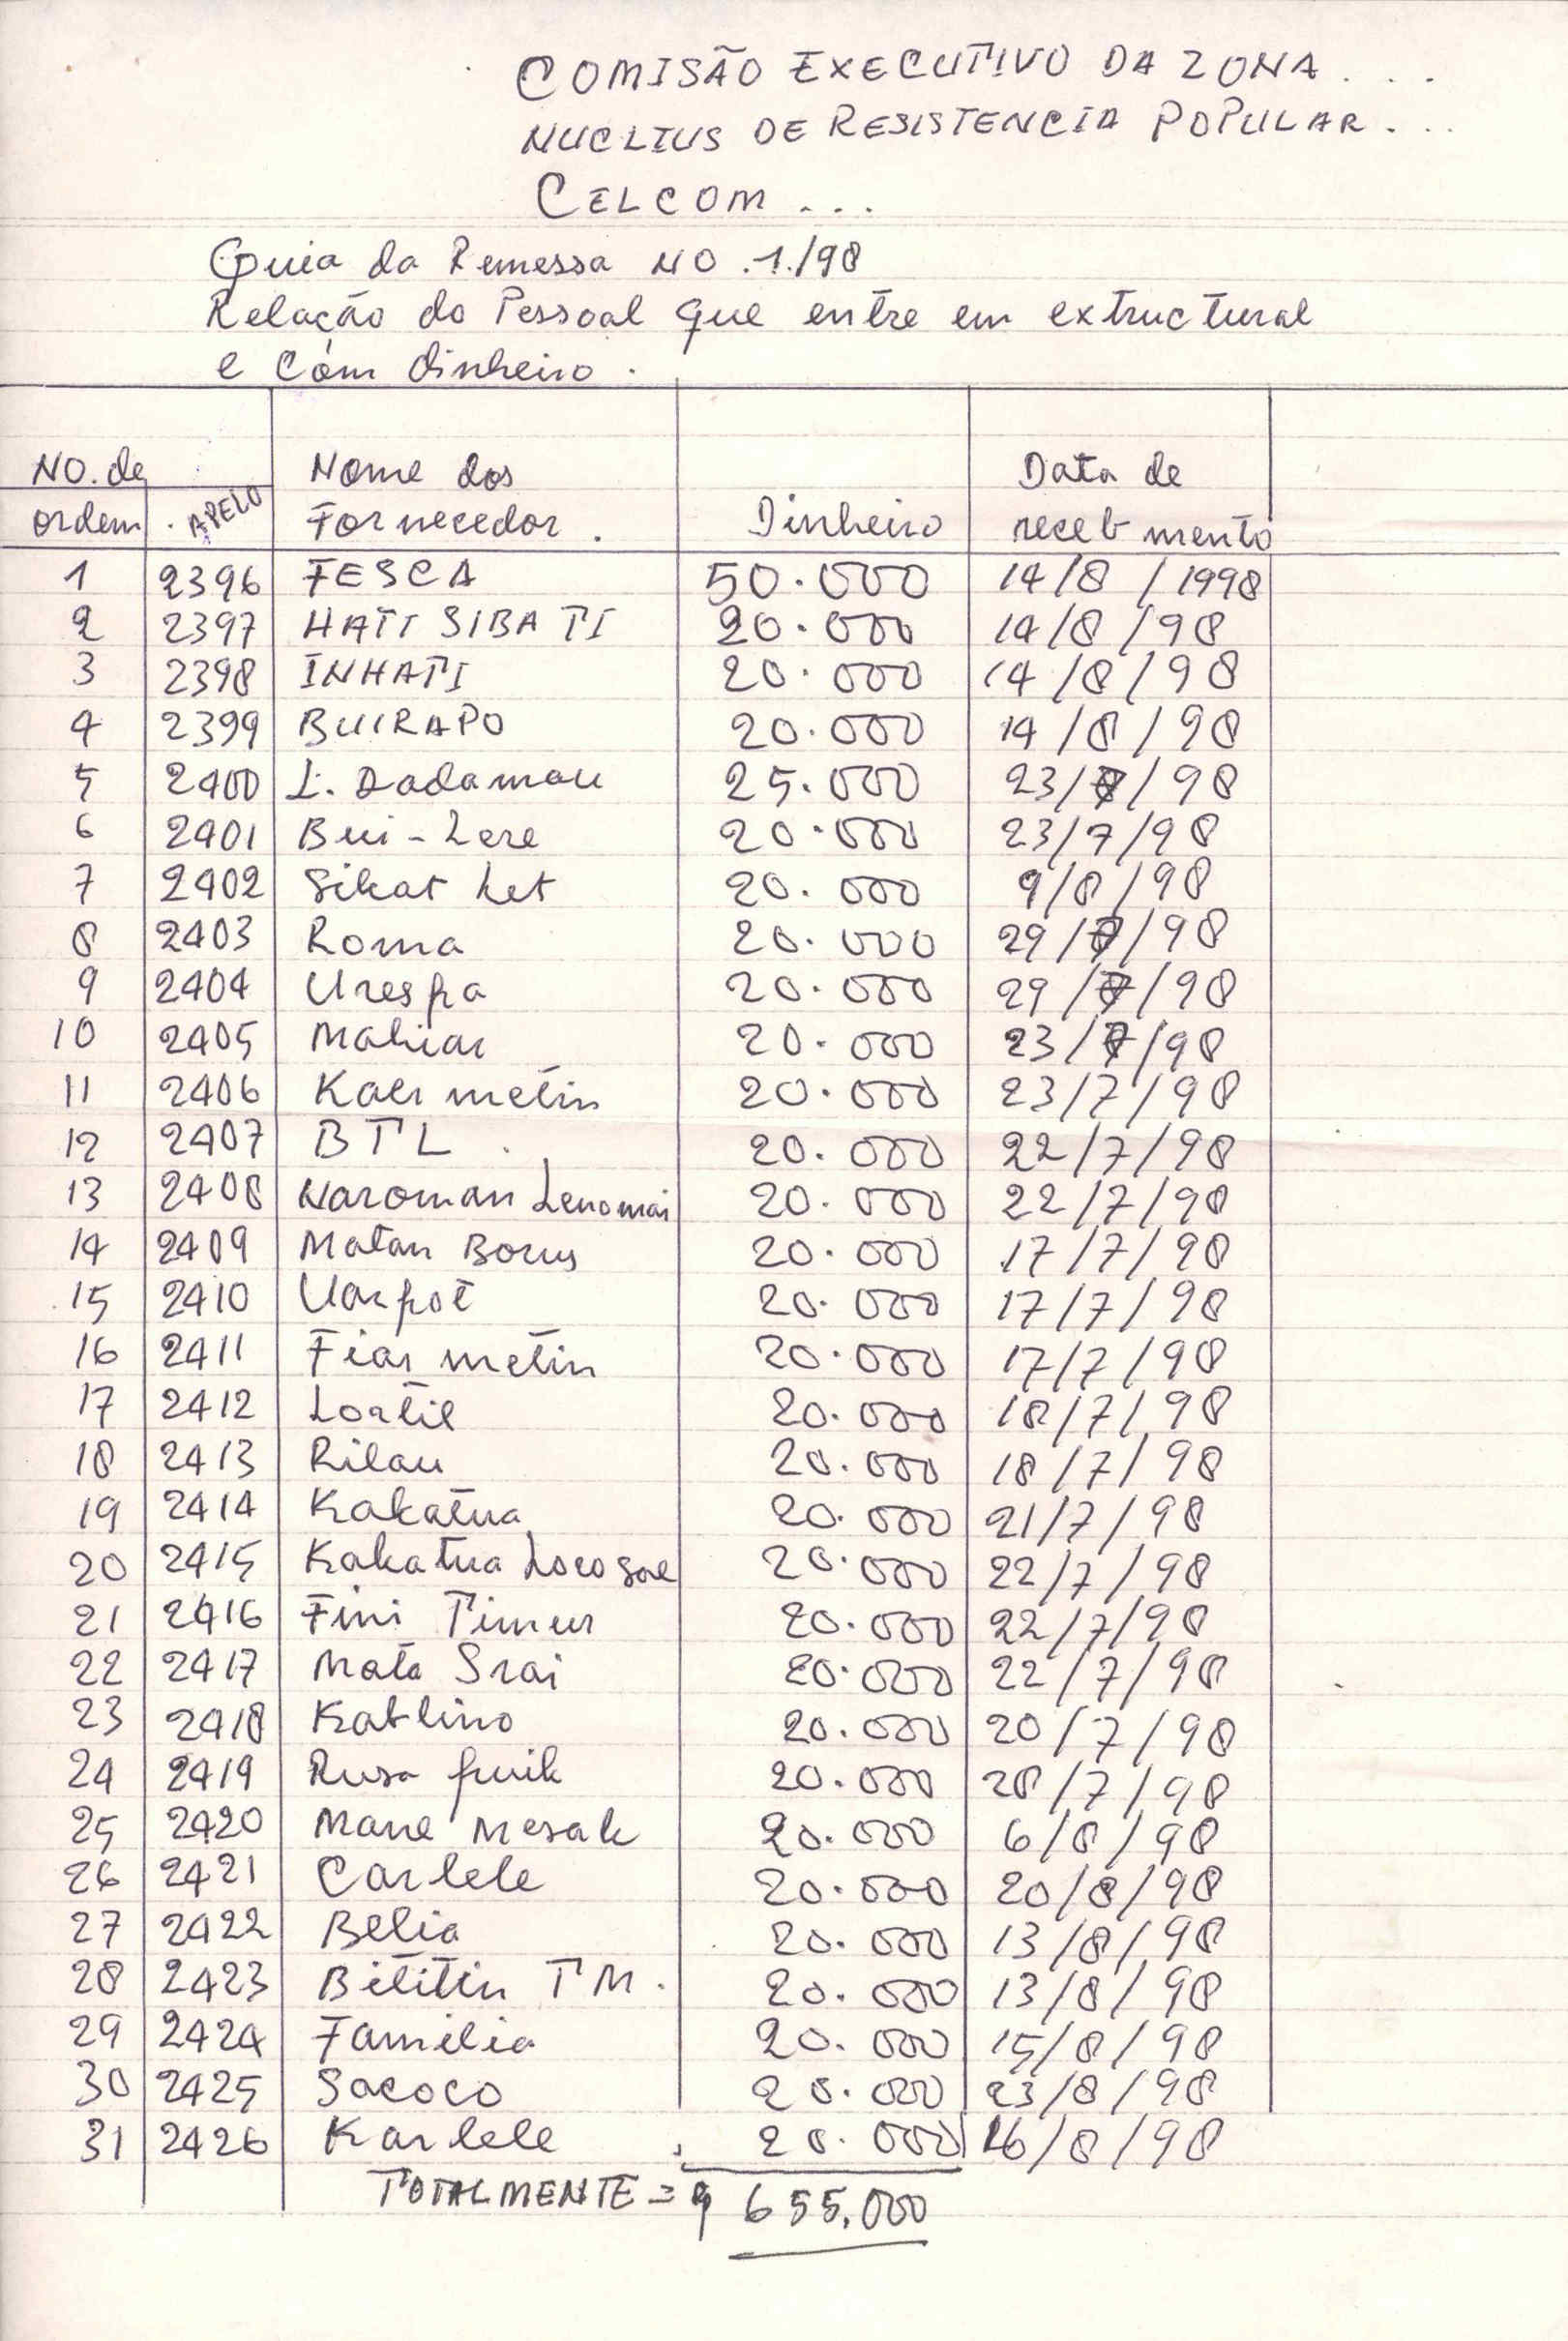 COMISÃO EXECUTIVO DA ZONA . . .
NUCLIUS DE RESISTENCIA POPULAR . . .
CELCOM . . .
Guia da Remessa NO .1./98
Relação do Pessoal que entre em extructural
e com dinheiro .
NO. de ordem APELO Nome dos Fornecedor . Dinheiro Data de recebmento
1 2396 FESCA 50.000 14/8/1998
2 2397 HATI SIBATI 20.000 14/8/98
3 2398 INHATI 20.000 14/8/98
4 2399 BUIRAPO 20.000 14/8/98
5 2400 L. Dadamau 25.000 23/7/98
6 2401 Bui-Lere 20.000 23/7/98
7 2402 Sikat Let 20.000 9/8/98
8 2403 Roma 20.000 29/7/98
9 2404 Urespa 20.000 29/7/98
10 2405 Mahiar 20.000 23/7/98
11 2406 Kaer metin 20.000 23/7/98
12 2407 BTL . 20.000 22/7/98
13 2408 Naroman Lenomai 20.000 22/7/98
14 2409 Matan Borus 20.000 17/7/98
15 2410 Uarpot 20.000 17/7/98
16 2411 Fiar metin 20.000 17/7/98
17 2412 Lortil 20.000 18/7/98
18 2413 Rilau 20.000 18/7/98
19 2414 Kakatua 20.000 21/7/98
20 2415 Kakatua Loro sae 20.000 22/7/98
21 2416 Fini Timur 20.000 22/7/98
22 2417 Mata Srai 20.000 22/7/98
23 2418 Kablino 20.000 20/7/98
24 2419 Rusa fuik 20.000 28/7/98
25 2420 Mane Mesak 20.000 6/8/98
26 2421 Carlele 20.000 20/8/98
27 2422 Belia 20.000 13/8/98
28 2423 Bititin TM . 20.000 13/8/98
29 2424 Familia 20.000 15/8/98
30 2425 Sacoco 20.000 23/8/98
31 2426 Karlele 20.000 16/8/98
TOTALMENTE = 655.000